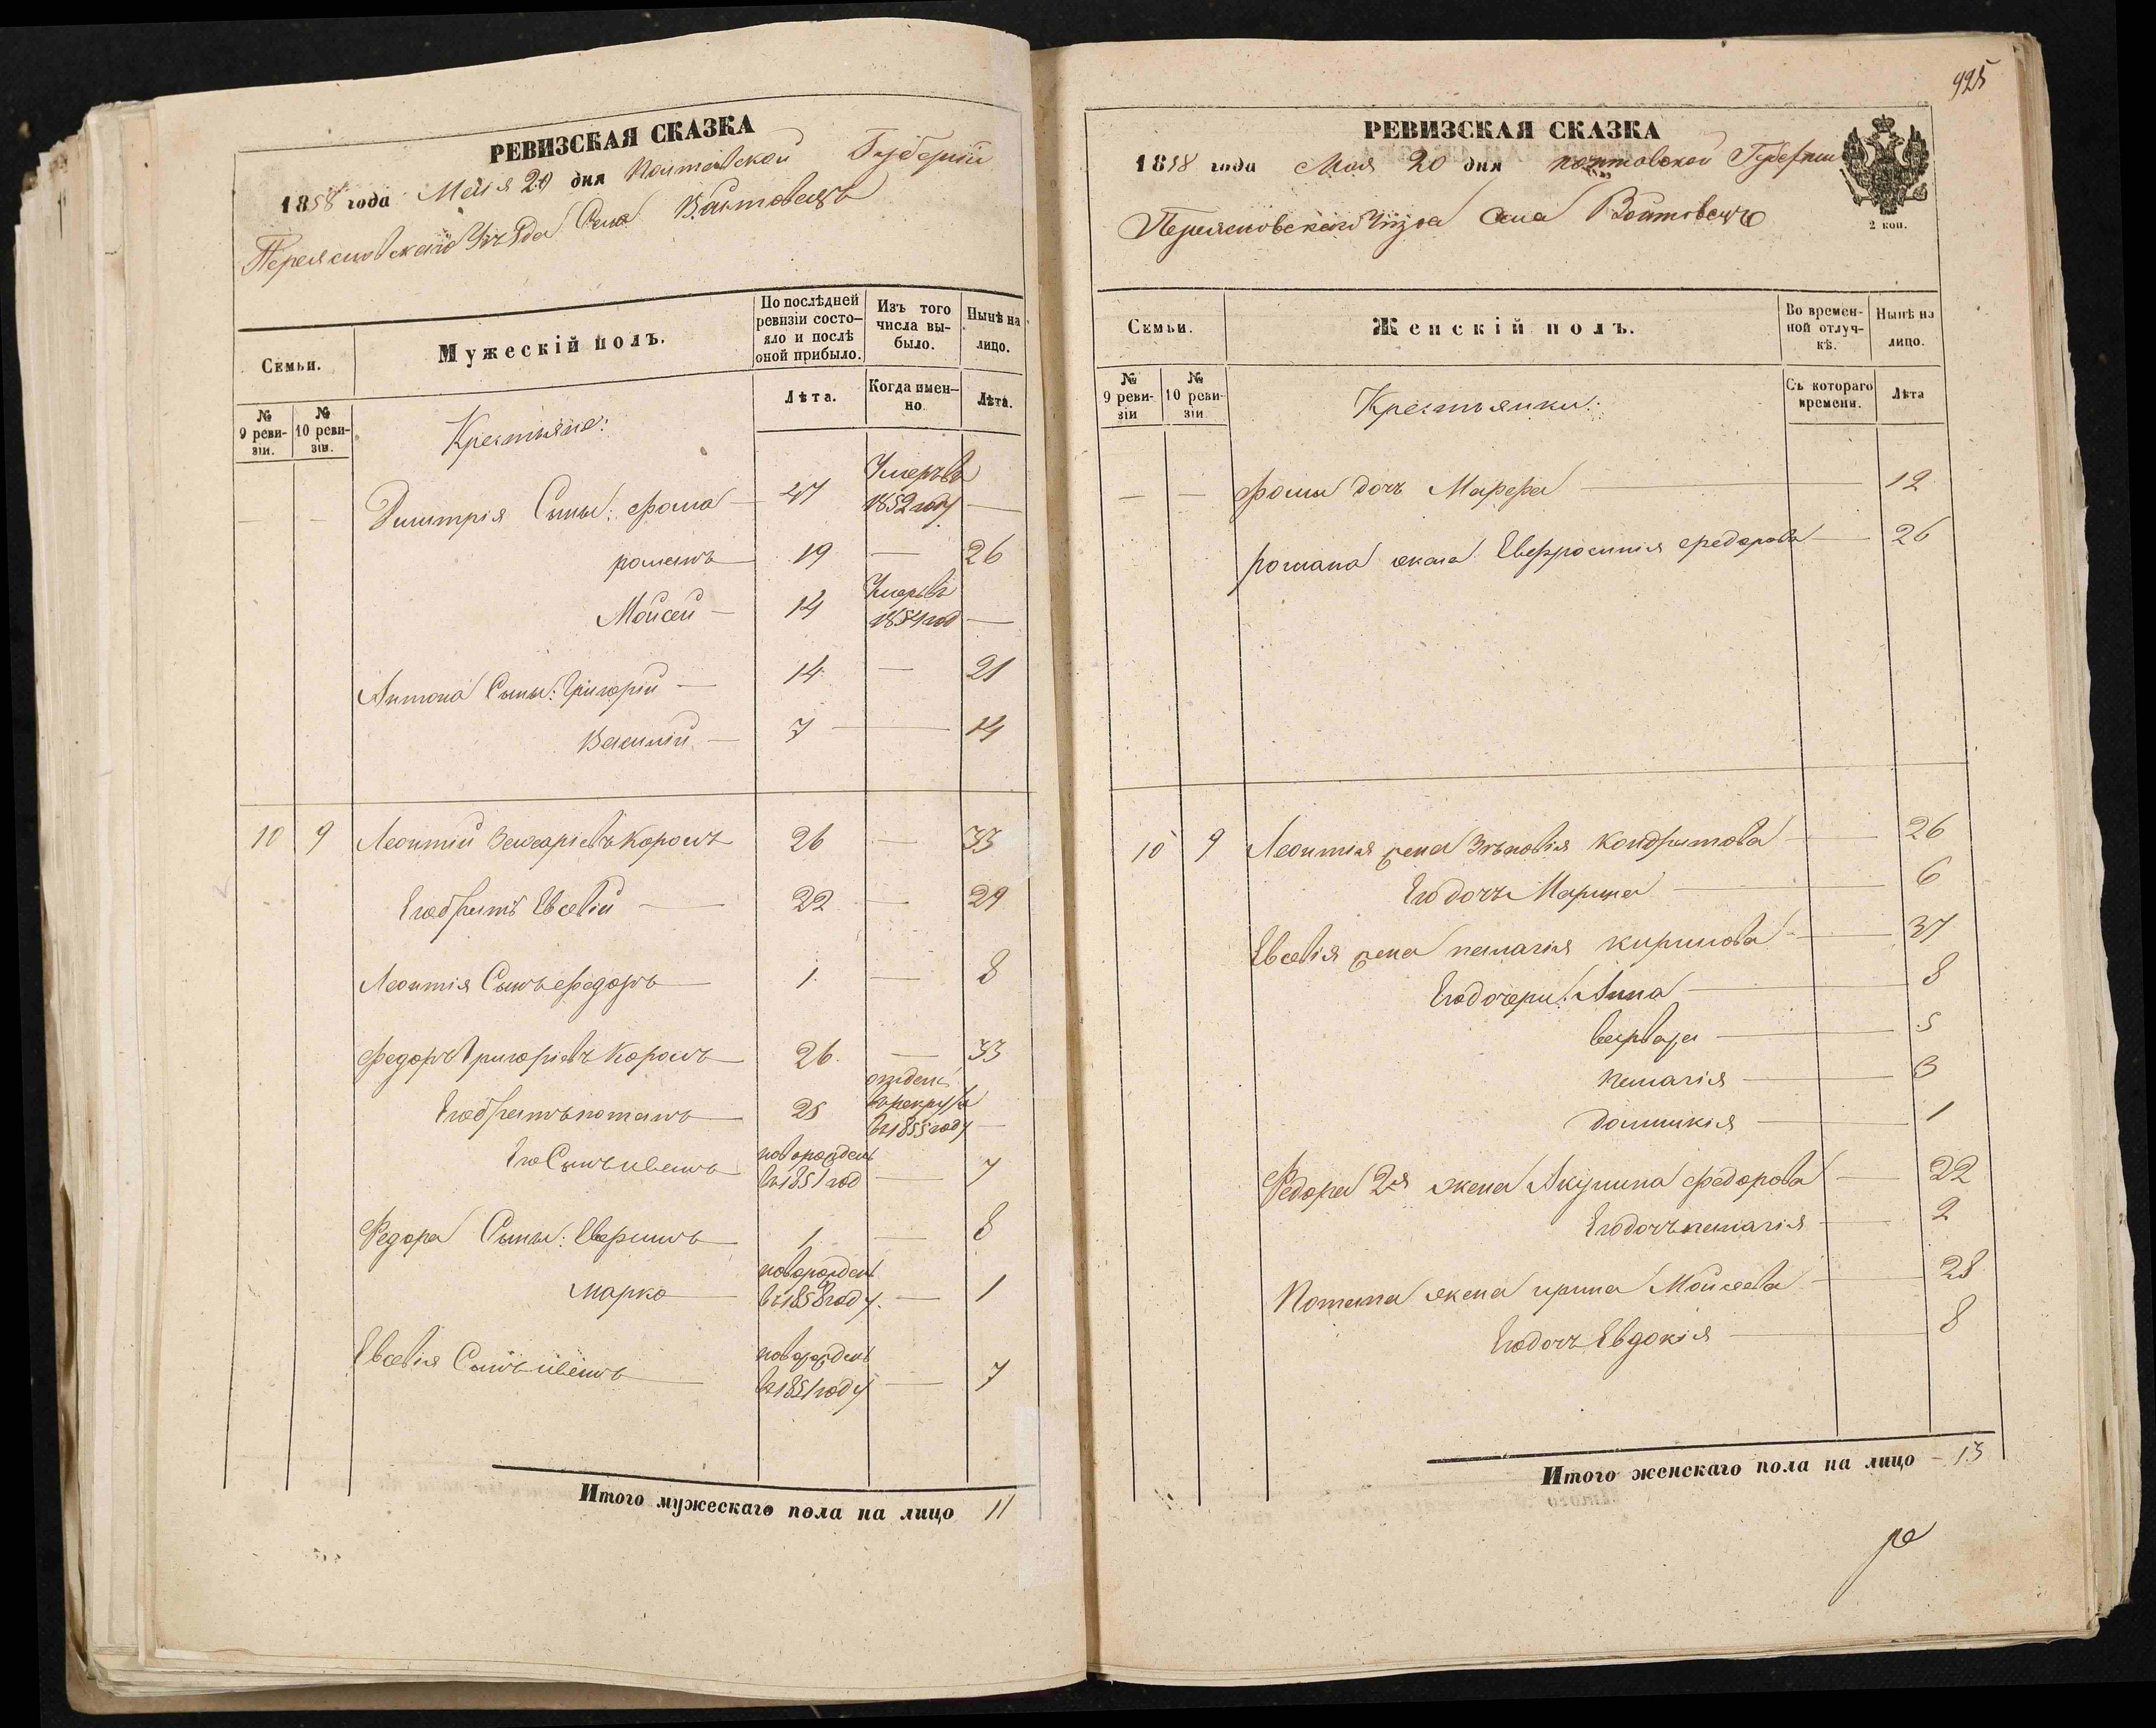 РЕВИЗСКАЯ СКАЗКА
1858 года Мая 20 дня Полтавской Губернии
Переясловскаго Уѣзда Села Войтовецъ
Семьи.
Мужескій полъ.
По послѣдней ревизіи состояло и послѣ оной прибыло.
Изъ того числа выбыло.
Нынѣ на лицо.
№ 9 ревизіи.
№ 10 ревизіи.
Крестьяне:
Лѣта.
Когда именно.
Лѣта.
— — Димитрія Сыны: Фома — 47 Умеръ въ 1852 году —
романъ 19 — 26
Мойсей — 14 Умеръ въ 1854 год —
Антона Сыны: Григорій — 14 — 21
Василій — 7 — 14
10 9 Леонтій Захаріевъ Коромъ 26 — 33
Егобратъ Евсевій — 22 — 29
Леонтія Сынъ Федоръ 1 — 8
Федоръ Григоріевъ Коромъ 26 — 33
Егобратъ потапъ 25 отданъ в рекруты в 1855 году —
Его Сынъ иванъ новорожденъ в 1851 год — 7
Федора Сыны: 1 — 8
марко новорожденъ в 1858 году — 1
Евсевія Сынъ иванъ новорожденъ в 1851 году — 7
Итого мужескаго пола на лицо 11
925
РЕВИЗСКАЯ СКАЗКА
1858 года Мая 20 дня полтовской Губернии
Переясловскаго Уѣзда Села Войтовецъ
2 коп.
Семьи.
Женскій полъ.
Во временной отлучкѣ.
Нынѣ на лицо.
№ 9 ревизіи
№ 10 ревизіи
Крестьянки:
Съ котораго времени.
Лѣта
— — Фомы дочь Марфа — 12
романа жена Евфросинія Федорова — 26
10 9 Леонтія жена Зѣновія Кондратова — 26
Его дочь Марина — 6
Евсевія жена пелагія кирилова — 37
Его дочери: Анна — 8
варвара — 5
пелагія — 3
домникія — 1
Федора 2я жена Акулина Федорова — 22
Его дочь пелагія — 2
Потапа жена ирина Мойсеева — 28
Его дочь Евдокія — 8
Итого женскаго пола на лицо — 13